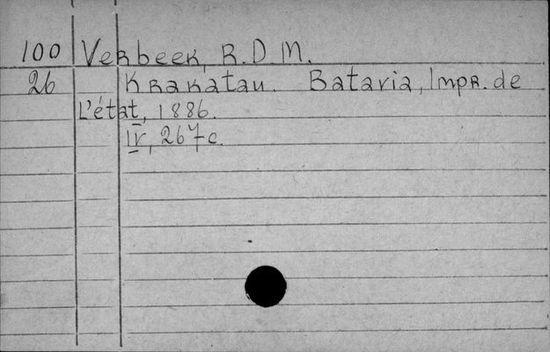 100 Verbeek, R.D M.
26 Krakatau. Batavia, Impr. de
L'état, 1886.
IV, 267 c.